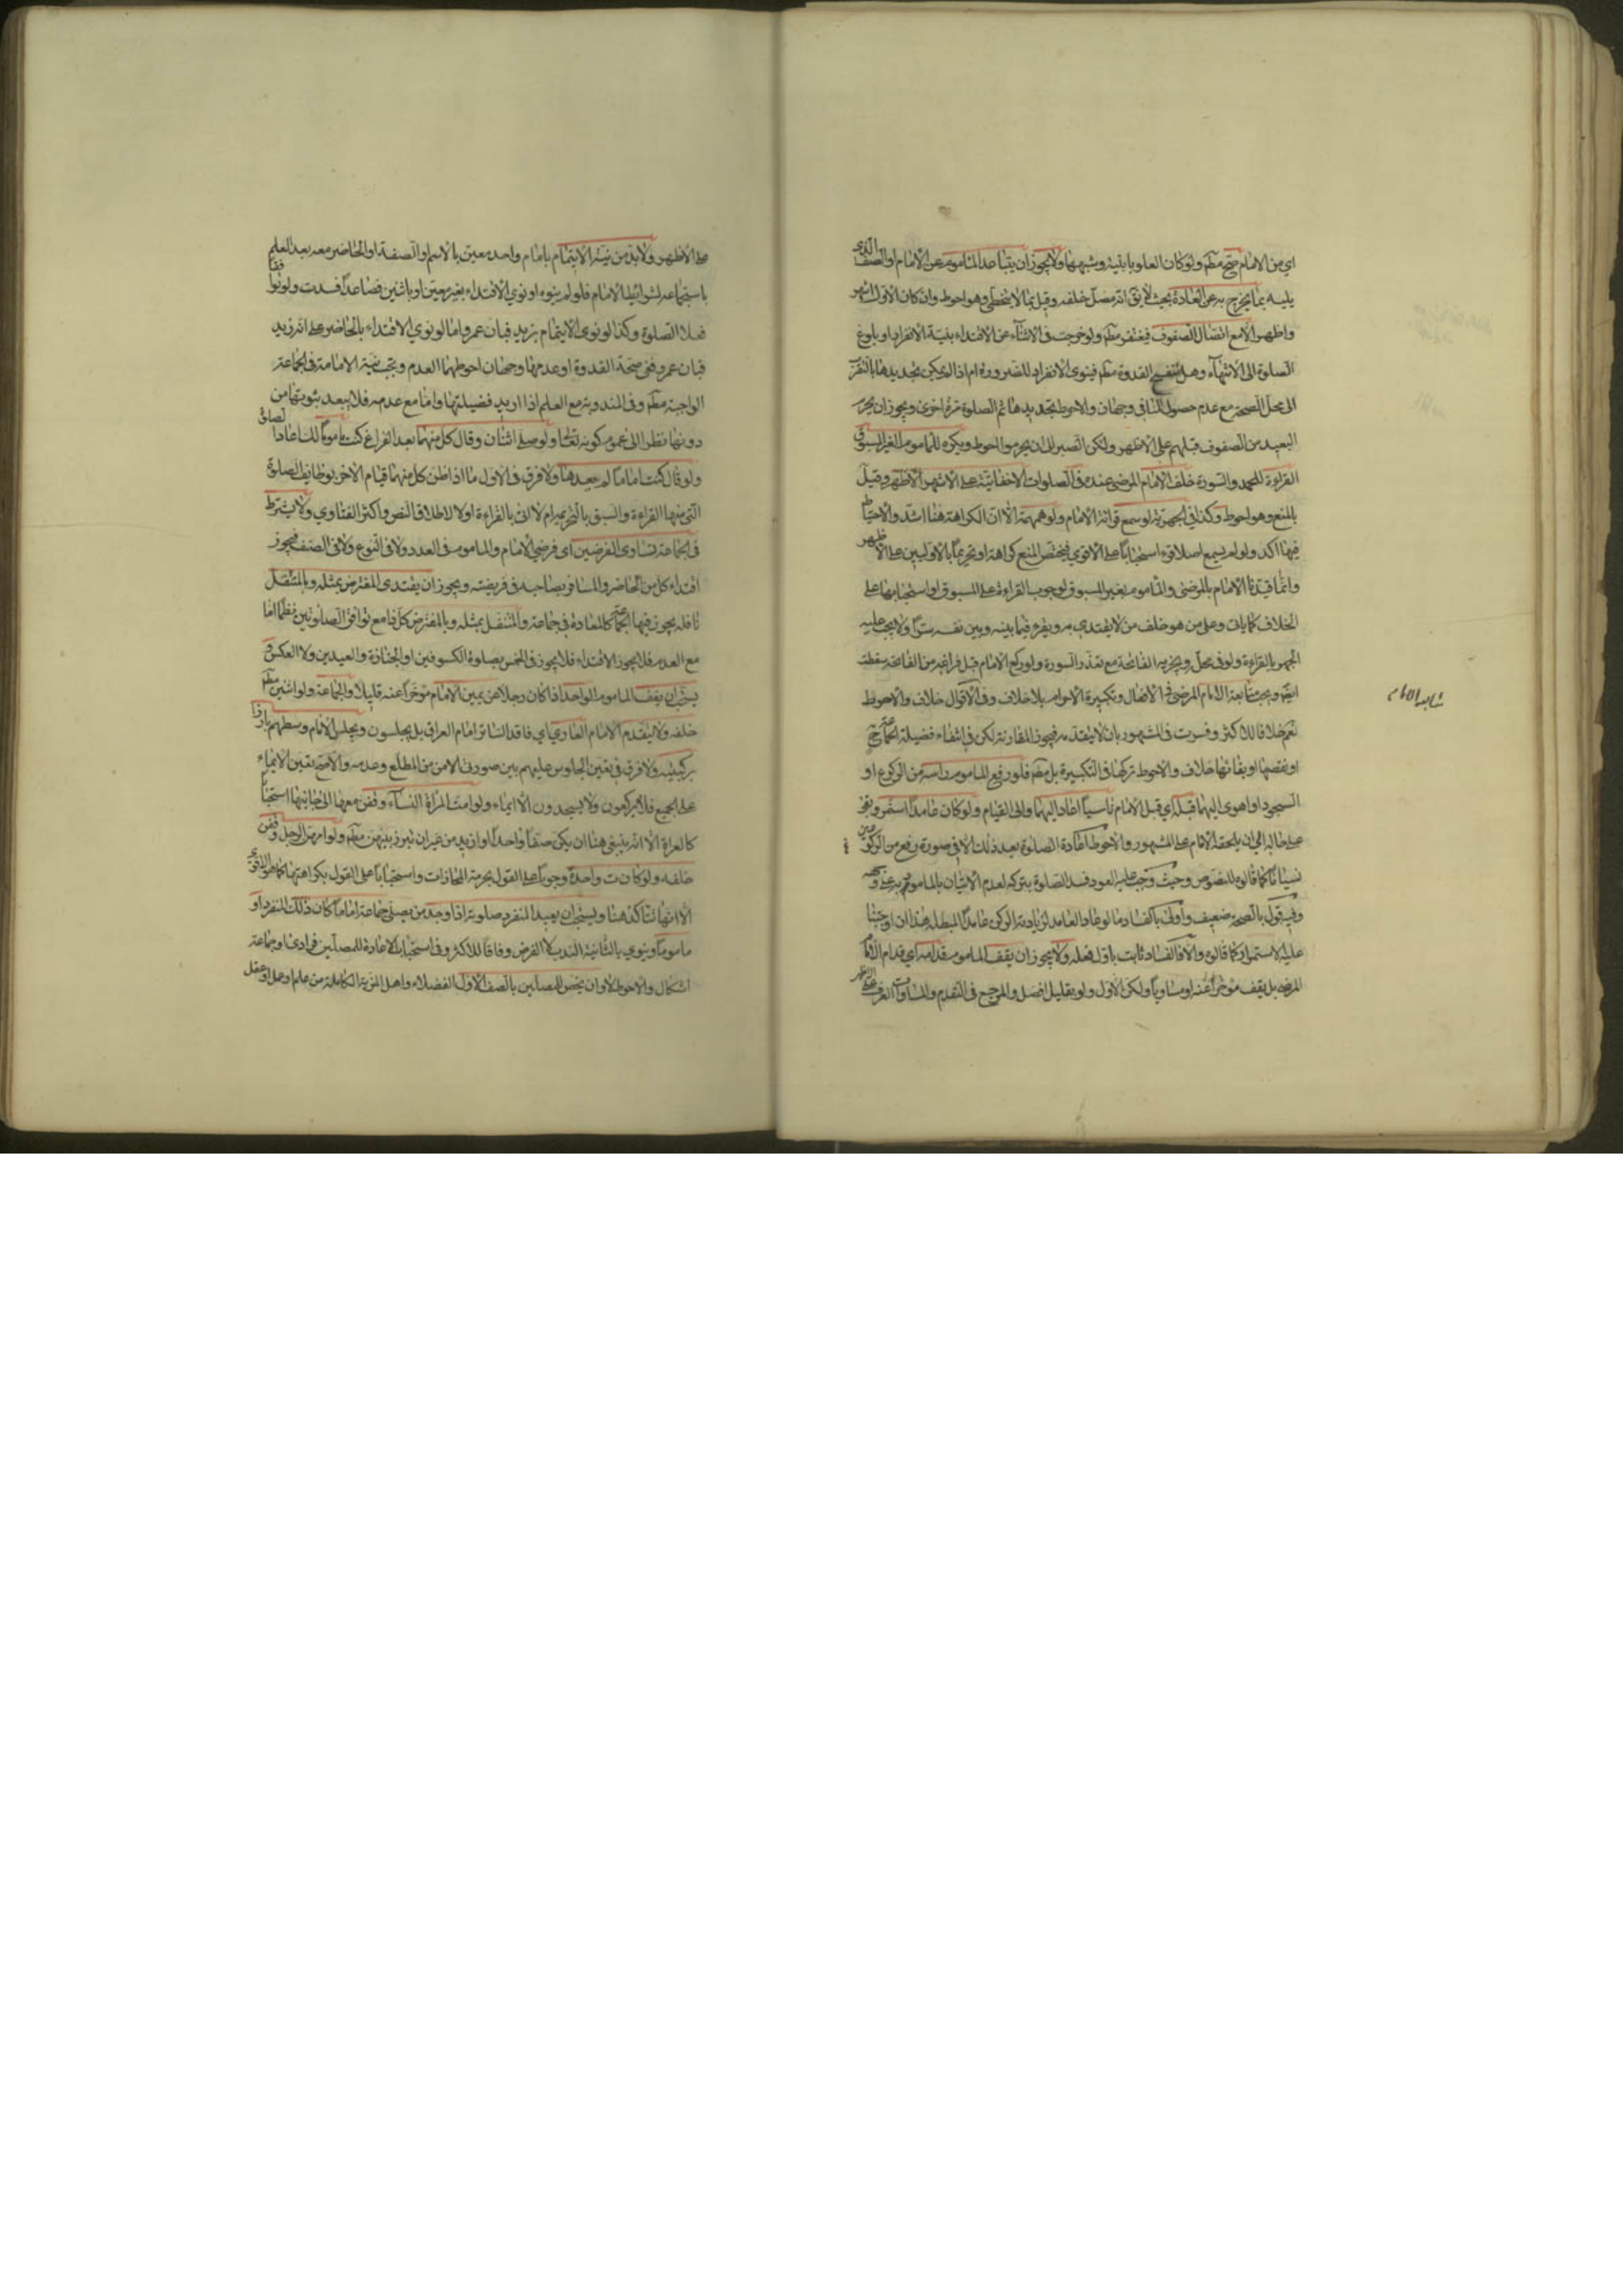 اي من الامام صح مط ولو كان العلو بابنية وشبهها ولا يجوز ان يتباعد الماموم عن الامام او الصف الذي
يليه بما يخرج به عن العادة بحيث لا يق انه مصل خلفه وقيل بما لا يتخطى وهو احوط وان كان الاول اشهر
واظهر الا مع اتصال الصفوف فيغتفر مط ولو خرجت في الاثناء عن الاقتداء بنية الانفراد او بلوغ
الصلوة الى الانتهاء وهل تنفسخ القدوة مط فينوى الانفراد للضرورة ام اذا لم يكن تجديدها بالتقرب
الى محل الصحة مع عدم حصول المنافي وجهان والاحوط تجديدها ثم الصلوة مرة اخرى ويجوز ان يحرم
البعيد من الصفوف قبلهم على الاظهر ولكن الصبر الى ان يحرموا احوط ويكره للماموم الغير المسبوق
القراءة للحمد والسورة خلف الامام المرضي عنده في الصلوات الاخفاتية على الاشهر الاظهر وقيل
بالمنع وهو احوط وكذا في الجهرية لو سمع قرائة الامام ولو همهمة الا ان الكراهة هنا اشد والاحتياط
فيها اكد ولو لم يسمع اصلا قرء استحبابا على الاقوي فيختص المنع كراهة او تحريما بالاوليين على الاظهر
وانما قيدنا الامام بالمرضي والماموم بغير المسبوق لوجوب القراءة على المسبوق او استحبابها على
الخلاف كما يات وعلى من هو خلف من لا يقتدي به ويقرء فيما بينه وبين نفسه سرا ولا يجب عليه
الجهر بالقراءة ولو في محله ويجزيه الفاتحة مع تعذر السورة ولو ركع الامام قبل فراغه من الفاتحة سقطت
ايض ويجب متابعة الامام المرضي في الافعال وتكبيرة الاحرام بلا خلاف وفي الاقوال خلاف والاحوط
نعم خلافا للاكثر وفسرت في المشهور بان لا يتقدمه فيجوز المقارنة لكن في انتفاء فضيلة الجماعة ح
او نقصها او بقائها خلاف والاحوط تركها في التكبيرة بل مط فلو رفع الماموم راسه من الركوع او
السجود او اهوى اليهما قبله اي قبل الامام ناسيا اعاد اليهما والى القيام ولو كان عامدا استمر وبقي
على حاله الى ان يلحقه الامام على المشهور والاحوط اعادة الصلوة بعد ذلك الا في صورة رفع من الركوع
نسيانا كما قالوه للنصوص وحيث وجب عليه العود فسد الصلوة بتركه لعدم الاتيان بالمامور به على وجهه
وفيه قول بالصحة ضعيف واولى بالفساد ما لو عاد العامد لزيادته الركن عامدا المبطلة هذا ان اوجبنا
عليه الاستمرار كما قالوه والا فالفساد ثابت باول فعله ولا يجوز ان يقف الماموم قدامه اي قدام الامام
المرضي بل يقف مؤخرا عنه او مساويا ولكن الاول ولو بقليل افضل والمرجع في التقدم والمساوات العرف على الاظهر
متابعة الامام
على الاظهر ولا بد من نية الايتمام بامام واحد معين بالاسم او الصفة او الحاضر معه بعد العلم
باستجماعه لشرائط الامام فلو لم ينوه او نوي الاقتداء بغير معين او باثنين فصاعدا فسدت ولو نوا فقا
فعلا الصلوة وكذا لو نوى الايتمام بزيد فبان عمرو اما لو نوي الاقتداء بالحاضر على انه زيد
فبان عمرو ففي صحة القدوة او عدمها وجهان احوطهما العدم ويجب نية الامامة في الجماعة
الواجبة مط وفي المندوبة مع العلم اذا اريد فضيلتها واما مع عدمه فلا يبعد ثبوتها من
دونها نظرا الى عموم كونه تع ولو صلى اثنان وقال كل منهما بعد الفراغ كنت ماموما لك اعادا الصلوة
ولو قال كنت اماما لم يعيدها ولا فرق في الاول ما اذا ظن كل منهما قيام الاخر بوظايف الصلوة
التي منها القراءة والسبق بالتحريم ام لا اتى بالقراءة او لا لاطلاق النص واكثر الفتاوي ولا يشترط
في الجماعة تساوى الفرضين اي فرضي الامام والماموم في العدد ولا في النوع ولا في الصنف فيجوز
اقتداء كل من الحاضر والمسافر بصاحبه في فريضته ويجوز ان يقتدى المفترض بمثله وبالمتنفل
نافلة يجوز فيها الجماعة كالمعادة في جماعة والمتنفل بمثله وبالمفترض كل ذا مع توافق الصلوتين نظما اما
مع العدم فلا يجوز الاقتداء فلا يجوز في الخمس بصلوة الكسوفين او الجنازة والعيدين ولا العكس و
يستحب ان يقف الماموم الواحد اذا كان رجلا عن يمين الامام مؤخرا عنه قليلا والجماعة ولو اثنين مط
خلفه ولا يتقدم الامام العاري اي فاقد الساتر امام العراة بل يجلسون ويجلس الامام وسطهم بارزا
بركبتيه ولا فرق في تعين الجلوس عليهم بين صورتي الامن من المطلع وعدمه والاصح تعين الايماء
على الجميع فلا يركعون ولا يسجدون الا ايماء ولو امت المرأة النساء وقفن معها الى جانبيها استحبابا
كالعراة الا انه ينبغي هنا ان يكن صفا واحدا او ازيد من غير ان تبرز بينهن مط ولو امهن الرجل وقفن
خلفه ولو كانت واحدة وجوبا على القول بحرمة المحاذات واستحبابا على القول بكراهتها كما هو الاقوى
الا انها تتاكد هنا ويستحب ان يعيد المنفرد صلوته اذا وجد من يصلي جماعة اماما كان ذلك المنفرد او
ماموما وينوي بالثانية الندب لا الفرض وفاقا للاكثر وفي استحباب الاعادة للمصلين فرادى او جماعة
اشكال والاحوط لا وان يخص للمصلين بالصف الاول الفضلاء واهل المزية الكاملة من علم او عمل او عقل